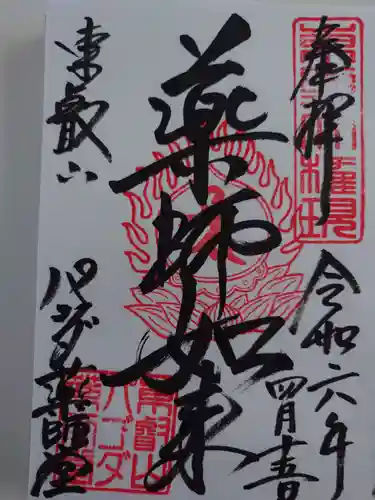 奉拝
令和六年
四月十五日
薬師如来
東叡山
パゴダ薬師堂
東叡山
パゴダ
薬師堂